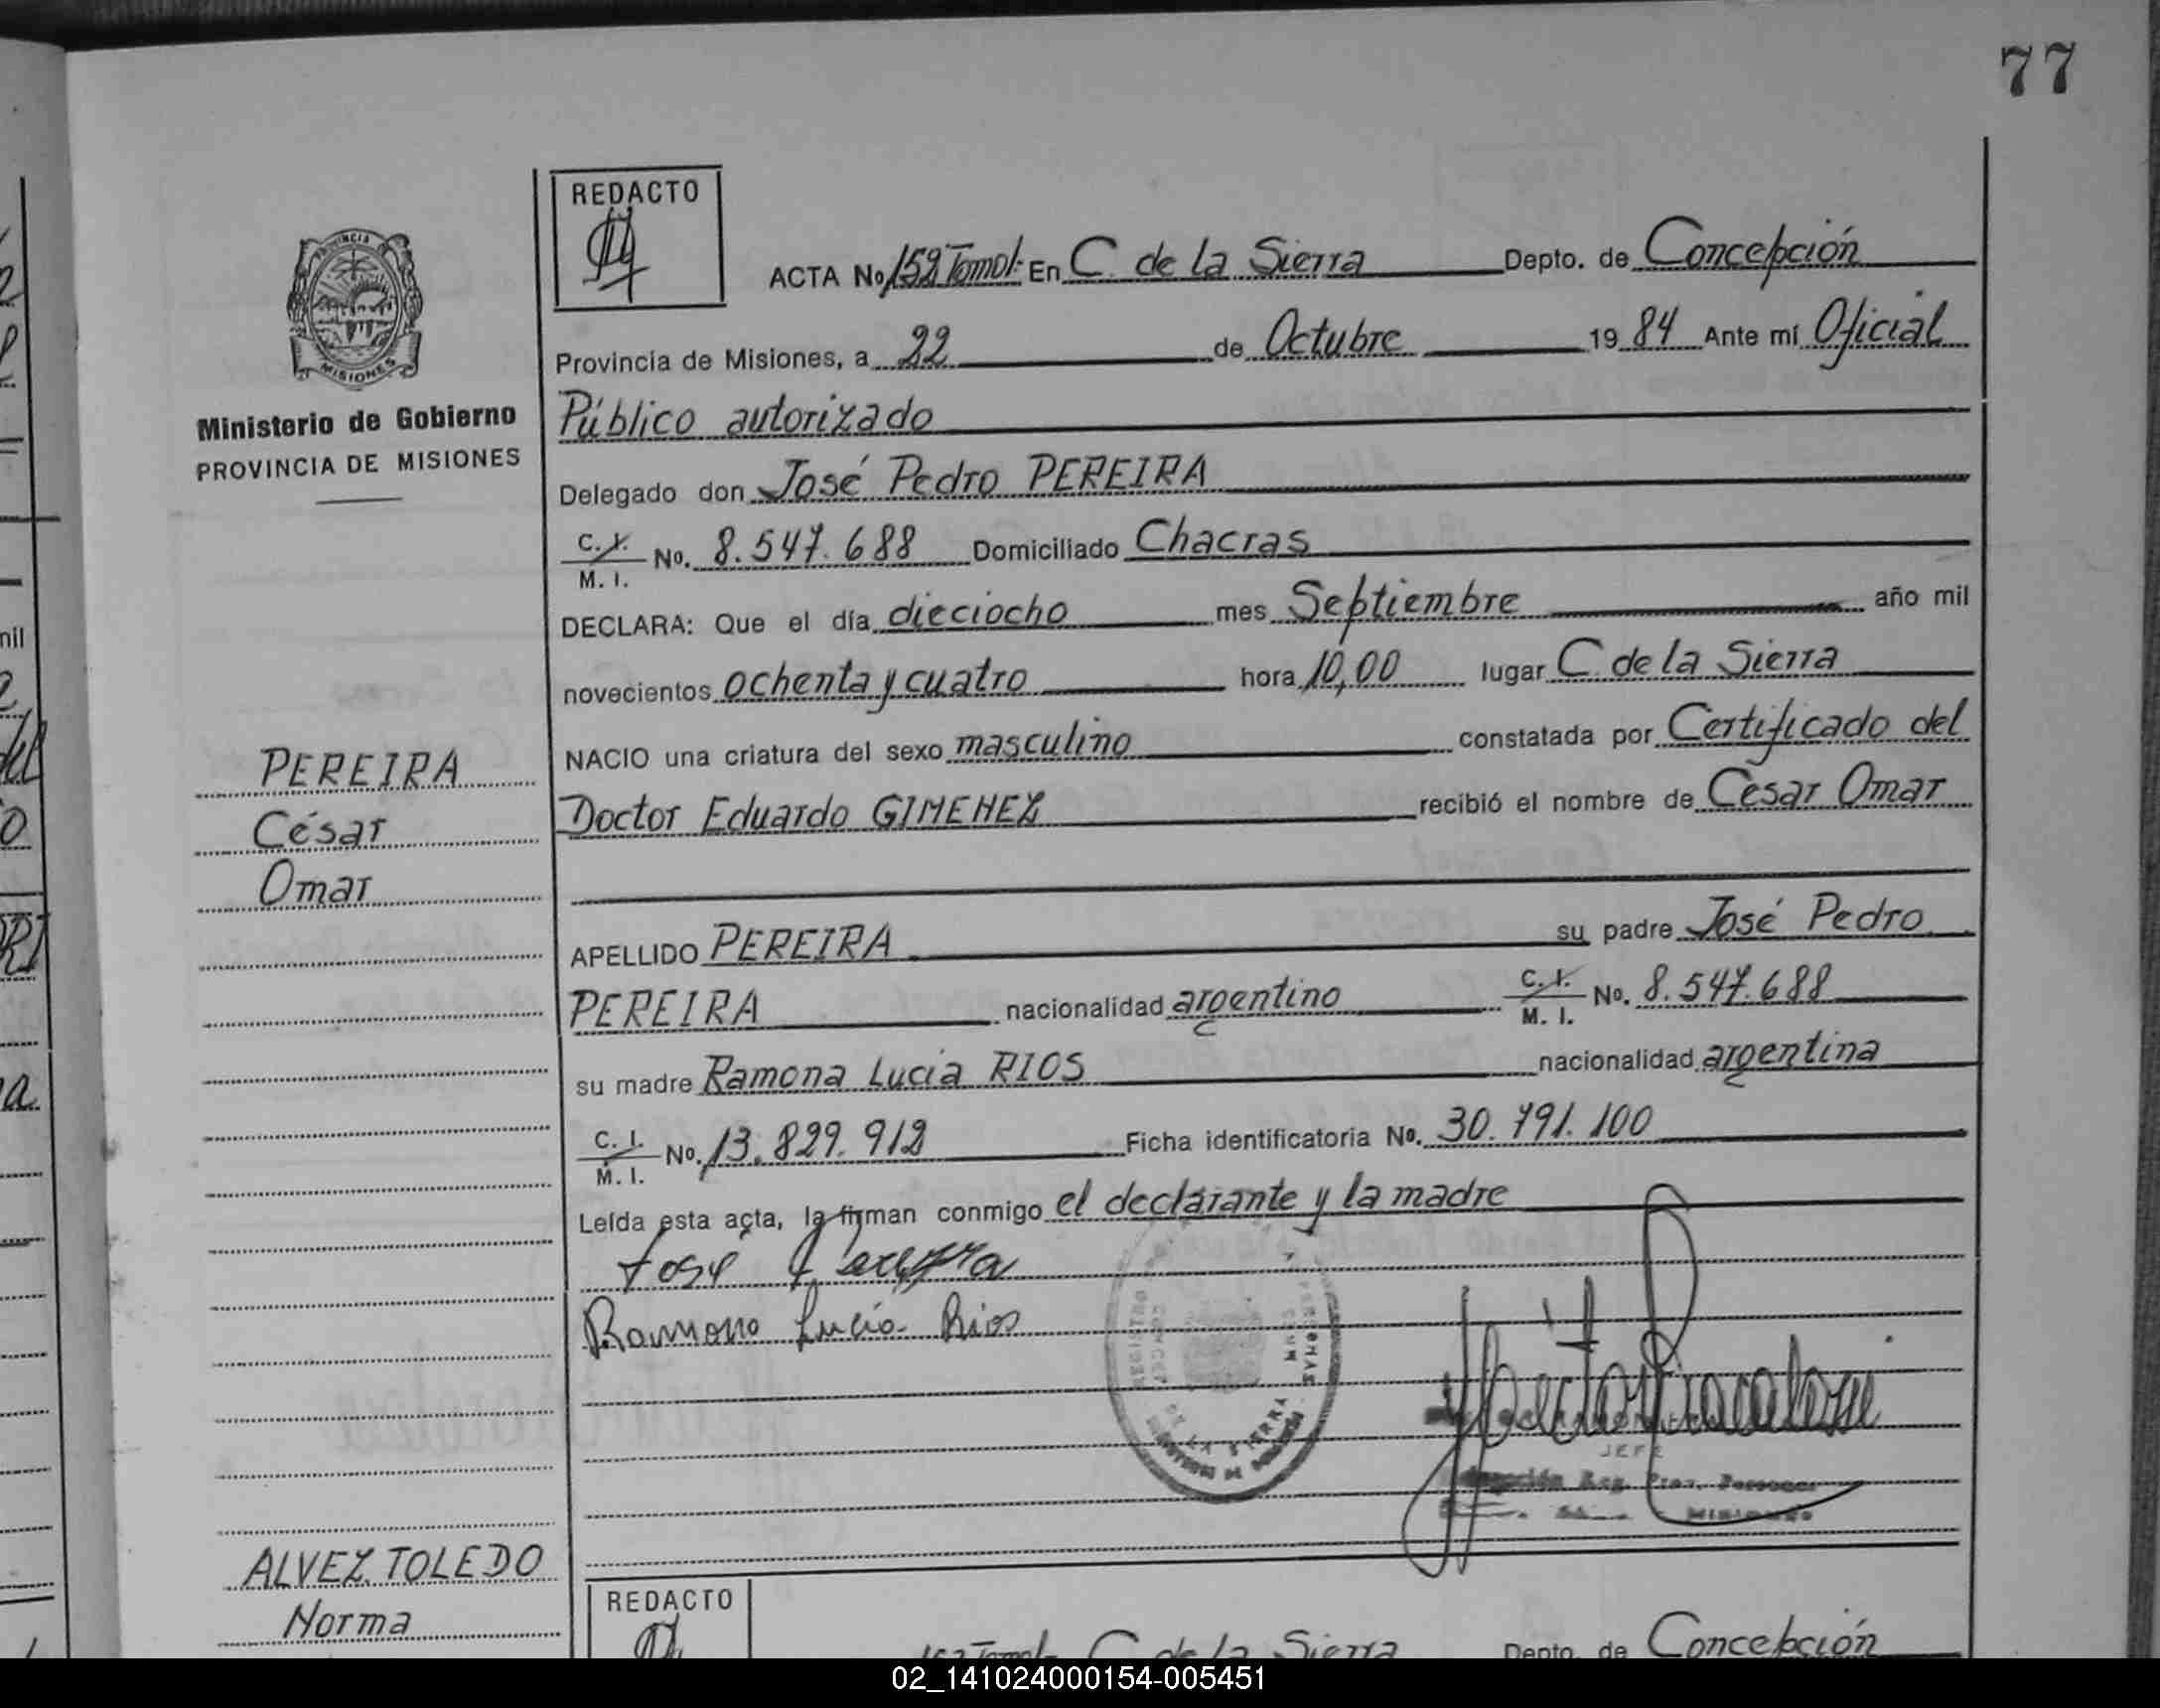 77
REDACTO
PROVINCIA DE
MISIONES
Ministerio de Gobierno
PROVINCIA DE MISIONES
ACTA No 152 Tomo I- En C. de la Sierra Depto. de Concepción
Provincia de Misiones, a 22 de Octubre 1984 Ante mí Oficial
Público autorizado
Delegado don José Pedro PEREIRA
C. I. M. I. No. 8.547.688 Domiciliado Chacras
DECLARA: Que el día dieciocho mes Septiembre año mil
novecientos ochenta y cuatro hora 10,00 lugar C de la Sierra
NACIO una criatura del sexo masculino constatada por Certificado del
Doctor Eduardo GIMENEZ recibió el nombre de César Omar
APELLIDO PEREIRA su padre José Pedro
PEREIRA nacionalidad argentino C. I. M. I. No. 8.547.688
su madre Ramona Lucia RIOS nacionalidad argentina
C. I. M. I. No. 13.829.912 Ficha identificatoria No. 30.791.100
Leída esta acta, la firman conmigo el declarante y la madre
José Pereyra
Ramona Lucía Rios
REGISTRO
DE LA SIERRA
JEFE
Reg. Prov. Personas
PEREIRA
César
Omar
ALVEZ TOLEDO
Norma
REDACTO
Tomo I- C de la Sierra Depto. de Concepción
02_141024000154-005451